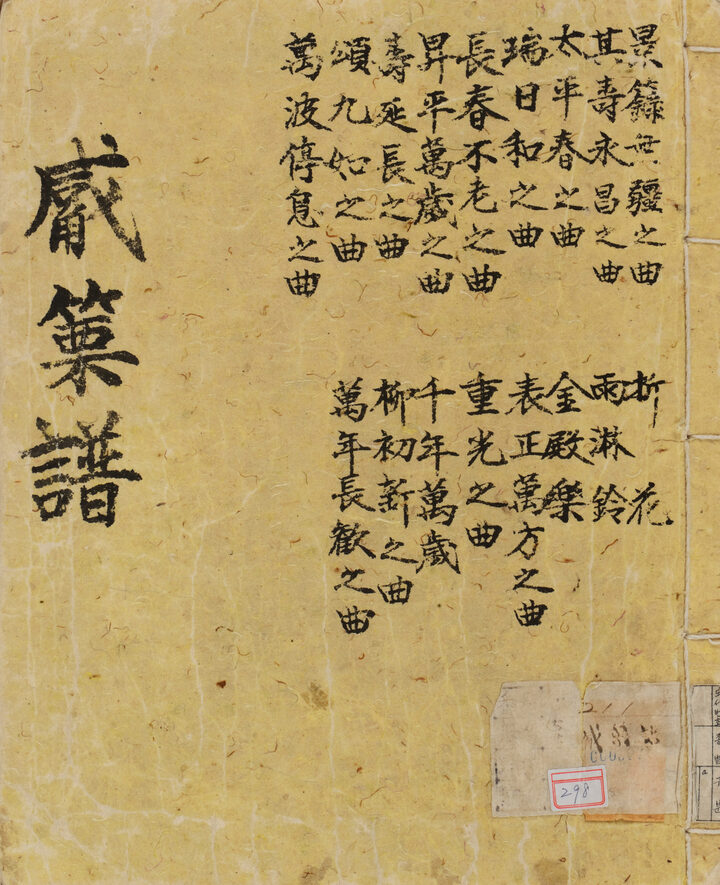 景籙無疆之曲
其壽永昌之曲
太平春之曲
瑞日和之曲
長春不老之曲
昇平萬歲之曲
壽延長之曲
頌九如之曲
萬波停息之曲
折花
雨淋鈴
金殿樂
表正萬方之曲
重光之曲
千年萬歲
柳初新之曲
萬年長歡之曲
觱篥譜
211
298